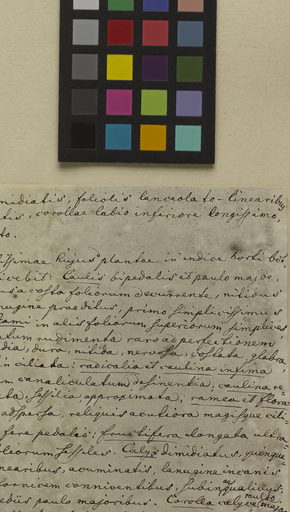 midiatis, foliolis lanceolato-linearibus
tis, corollae labio inferiore longissimo.
to.
issimae hujus plantae in indice horti bot.
Caulis bipedalis et paulo major,
costa foliorum decurrente, nitidus
nugine praeditus, primo simplicissimus
in alis foliorum superiorum simplices
rudimenta raro ad perfectionem
dia, dura, nitida, nervosa, costata glabra,
radicalia et caulina infima
canaliculatum desinentia, caulina re
ta, sessilia, approximata, ramea et flora
adsparsa, reliquis acutiora magisque
pedalis: fructifera elongata ultra
sessiles. Calyx dimidiatus, quinque
nearibus, acuminatis, lanugine incanis
fornicem conniventibus, subinaequalibus,
paulo majoribus. Corolla calyce multo majo